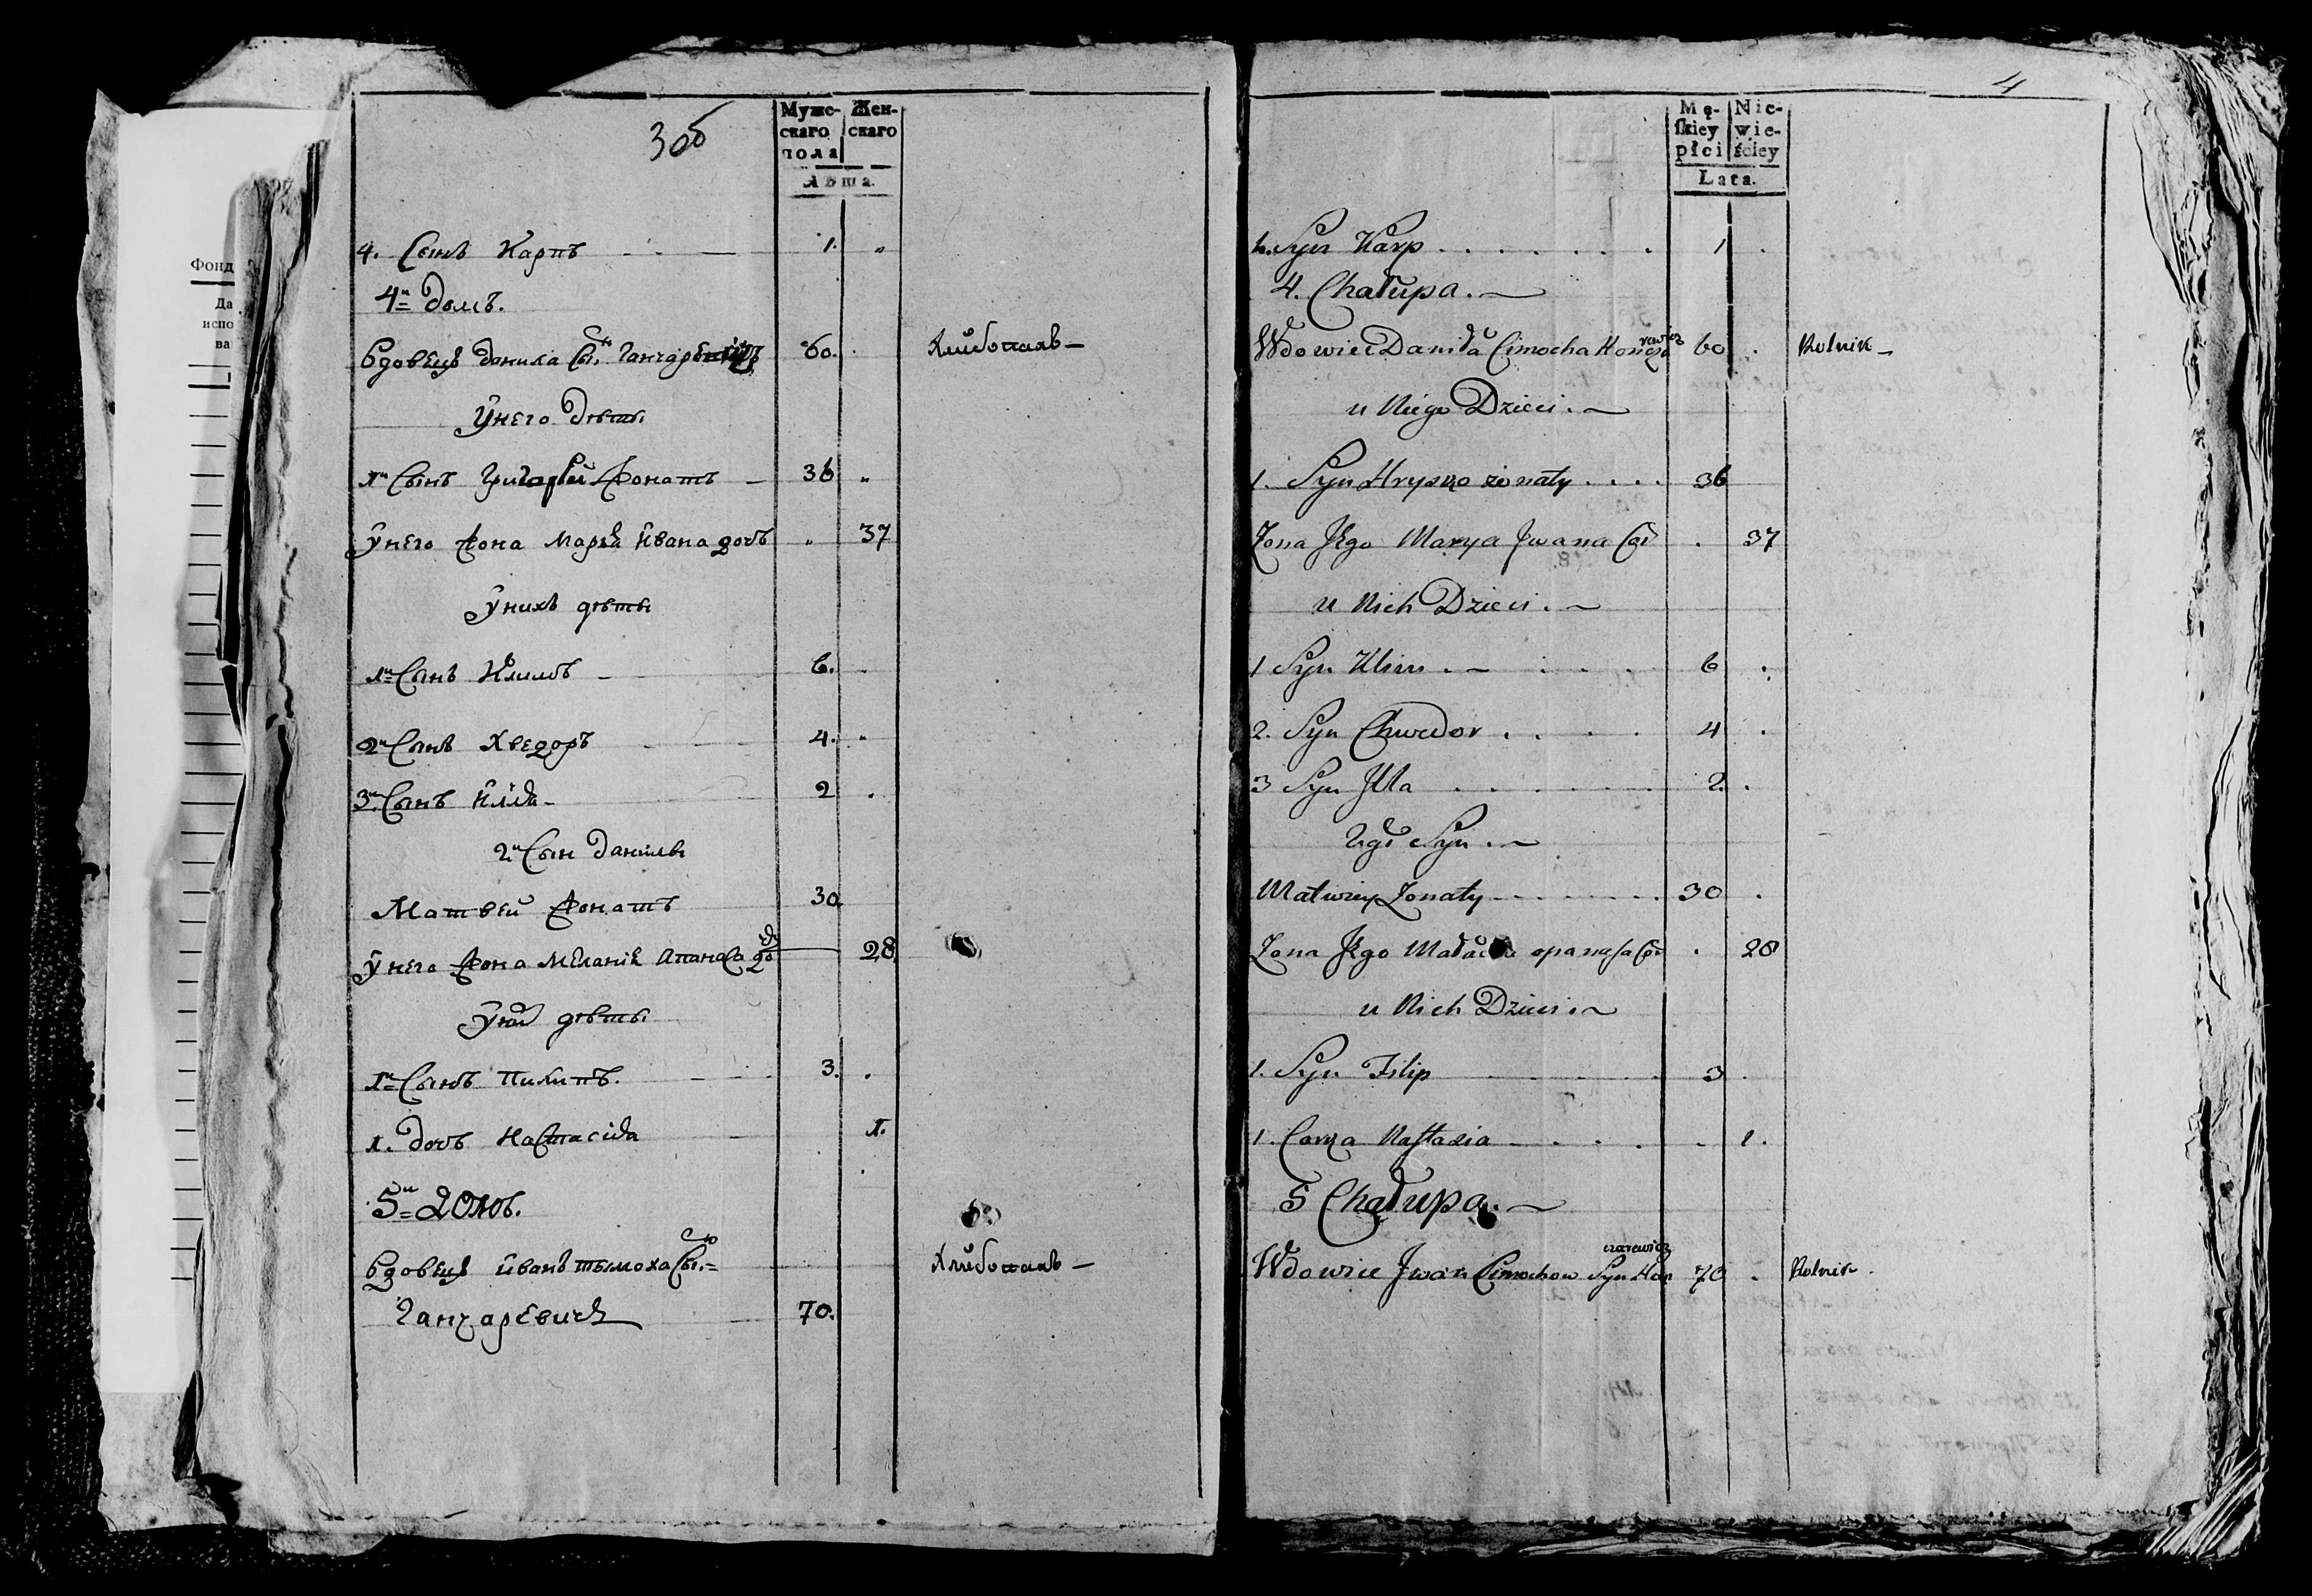 Фонд
Да
испо
ва
3об
Мужескаго пола
Женскаго
Лѣта.
4. Сынъ Карпъ 1. "
4й Домъ.
Вдовецъ Данила Сын Ганчаревичъ 60. Хлѣбопашъ
У него Дѣти
1й Сынъ Григорей Жонатъ 36 "
У него Жона Марья Ивана дочъ " 37
У нихъ дѣти
1й Сынъ Климъ 6.
2й Сынъ Хведоръ 4. "
3й Сынъ Илія 2 .
2й Сын Данилы
Матвей Жонатъ 30.
У него Жона Меланія Апанаса до 28
У них дѣти
1й Сынъ Пилипъ. 3. .
1. Дочъ Настасія 1.
5й Домъ.
Вдовецъ Иванъ Тымоха Сы. Хлѣбопашъ
Ганчаревичъ 70.
4
Męskiey płci
Niewieściey
Lata.
4. Syn Karp 1 .
4. Chałupa.
Wdowiec Daniła Cimocha Honczarewicz 60 . Rolnik
u Niego Dzieci.
1. Syn Hryszko żonaty 36
Zona Jego Marya Jwana Cór . 37
u Nich Dzieci.
1 Syn Klim 6 .
2. Syn Chwedor 4 .
3 Syn Jlla 2. .
2gi Syn.
Matwiey Zonaty 30 .
Zona Jego opanasa Cór . 28
u Nich Dzieci.
1. Syn Filip 3 .
1. Corka Nastazia . 1.
5 Chałupa.
Wdowiec Jwan Cimochow Syn Honczarewicz 70 . Rolnik